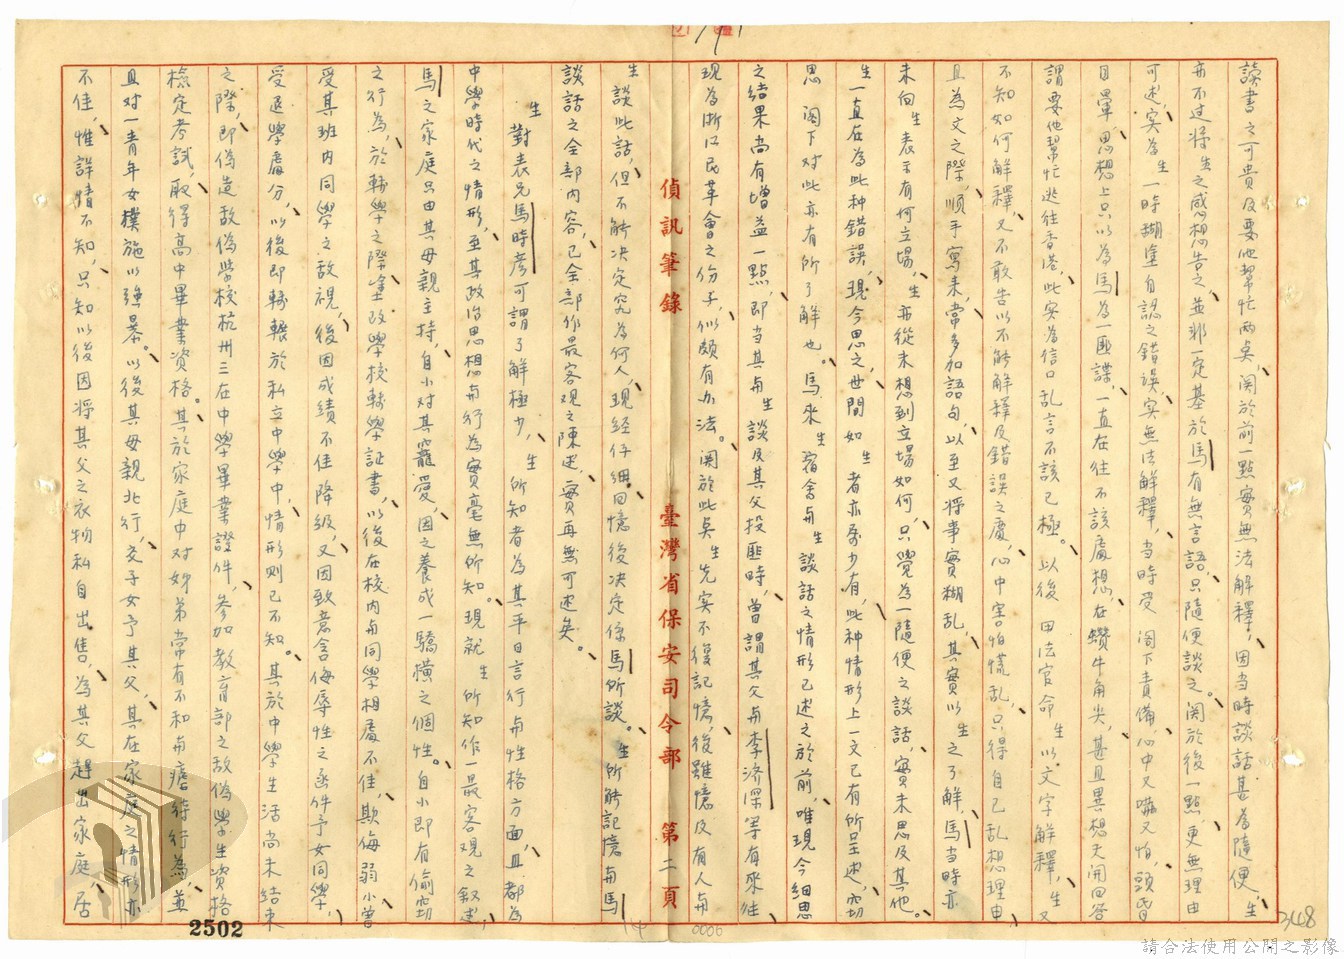 讀書之可貴及要他幫忙兩點，関於前一點實無法解釋，因当時談話甚為隨便，生
亦不过將生之感想告之，並非一定基於馬有無言語，只隨便談之。関於後一點，更無理由
可述，实為生一時糊塗自認之錯誤，实無法解釋，当時受 閣下責備，心中又嚇又怕，頭昏
目暈，思想上只以為馬為一匪諜，一直在往不該處想，在鑽牛角尖，甚且異想天開回答
謂要他幫忙逃往香港，此实為信口乱言不該已極。以後 田法官命生以文字解釋，生又
不知如何解釋，又不敢告以不能解釋及錯誤之處，心中害怕慌乱，只得自己乱想理由，
且為文之際，順手寫来，常多加語句，以至又將事實糊乱，其實以生之了解，馬当時亦
未向生表示有何立場，生亦從未想到立場如何，只覺為一隨便之談話，實未思及其他。
生一直在為此种錯誤，現今思之，世間如生者亦屬少有，此种情形上一文已有所呈述，
思 閣下对此亦有所了解也。馬來生宿舍与生談話之情形已述之於前，唯現今細思
之結果尚有增益一點，即当其与生談及其父投匪時，曾謂其父与李济深等有來往
現為浙江民革會之份子，似頗有办法。関於此点生先实不復記憶，後雖憶及有人与
偵訊筆錄 臺灣省保安司令部 第二頁
生談此話，但不能决定究為何人，現経仔細回憶後决定係馬所談。生所能記憶与馬
談話之全部內容，已全部作最客观之陳述，實再無可述矣。
生對表兄馬時彥可謂了解極少，生所知者為其平日言行与性格方面，且都為
中學時代之情形，至其政治思想与行為實毫無所知。現就生所知作一最客观之敘述，
馬之家庭只由其母親主持，自小对其寵愛，因之養成一驕橫之個性。自小即有偷窃
之行為，於轉學之際塗改學校轉學証書，以後在校內与同學相處不佳，欺侮弱小曾
受其班内同學之敌視，後因成績不佳降級，又因致意含侮辱性之函件予女同學，
受退學處分，以後即輾轉於私立中學中，情形則已不知。其於中學生活尚未結束
之際，即偽造敌偽學校杭州三在中學畢業證件，參加教育部之敌偽學生資格
檢定考試，取得高中畢業資格。其於家庭中对姊弟常有不和与虐待行為，並
且对一青年女僕施以強暴。以後其母親北行，交子女予其父，其在家庭之情形亦
不佳，惟詳情不知，只知以後因將其父之衣物私自出售，為其父趕出家庭，居
2502
14
0006
348
請合法使用公開之影像